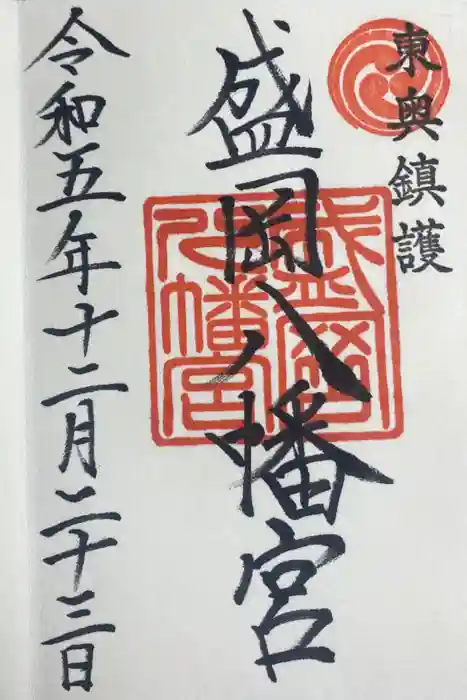 東奥鎮護
盛岡八幡宮
令和五年十二月二十三日
盛岡八幡宮